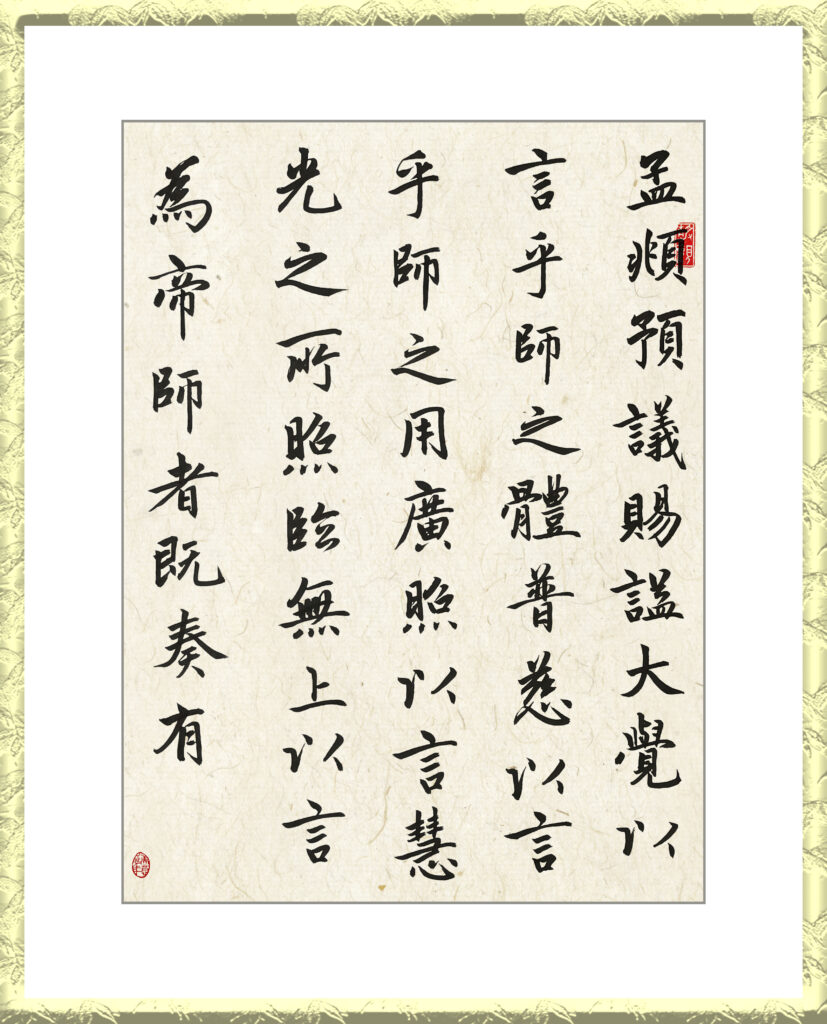 孟頫預議賜謚大覺以
言乎師之體普慈以言
乎師之用廣照以言慧
光之所照臨無上以言
為帝師者既奏有